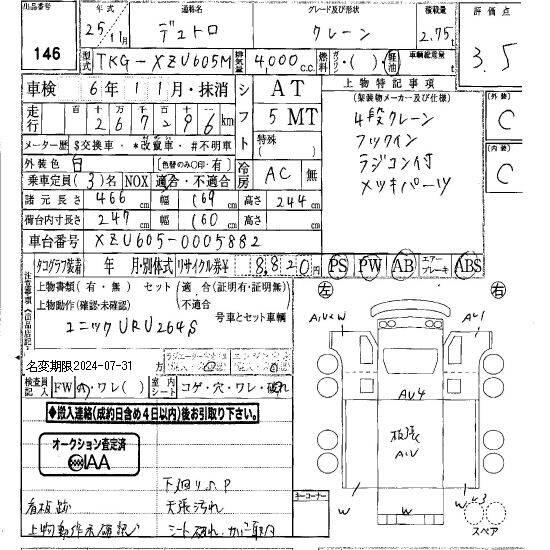 出品番号 146
年式 25年11月
通称名 デュトロ
グレード及び形状 クレーン
積載量 2.75t
評価点 3.5
型式 TKG-XZU605M
排気量 4,000c.c.
燃料 ガソリン・( )・軽油
車輌総重量 t
車検 6年11月・抹消
シフト AT 5 MT
特殊( )
走行 十万千百十 126796km
メーター歴 $交換車・*改竄車・#不明車
外装色 白 (色替のみ〇印・有)
冷房 AC 無
乗車定員(3)名 NOX 適合・不適合
諸元長さ 466 幅 169 高さ 244cm
荷台内寸長さ 247 幅 160 高さ cm
車台番号 XZU605-0005882
上物特記事項
(架装物メーカー及び仕様)
4段クレーン
フックイン
ラジコン付
メッキパーツ
(外装) C
(内装) C
タコグラフ装着 年 月・別体式 リサイクル券¥ 8820円
PS PW AB エアーブレーキ ABS
注意事項(出品店記入)
上物書類(有・無) セット(適合(証明有・証明無)・不適合
上物動作(確認・未確認) 号車とセット車輌
ユニック URU264S
名変期限2024-07-31
検査員記入 FW ワレ( ) 室内シート コゲ・穴・ワレ・破れ
◆搬入連絡(成約日含め4日以内)後お引取り下さい。
オークション査定済
IAA
下廻りS,P
看板跡 天張汚れ
上物動作未確認 シート破れ
キーコーナー
左 右
AU2W
AU1
AU4
板張
AU
W
W
W3
スペア